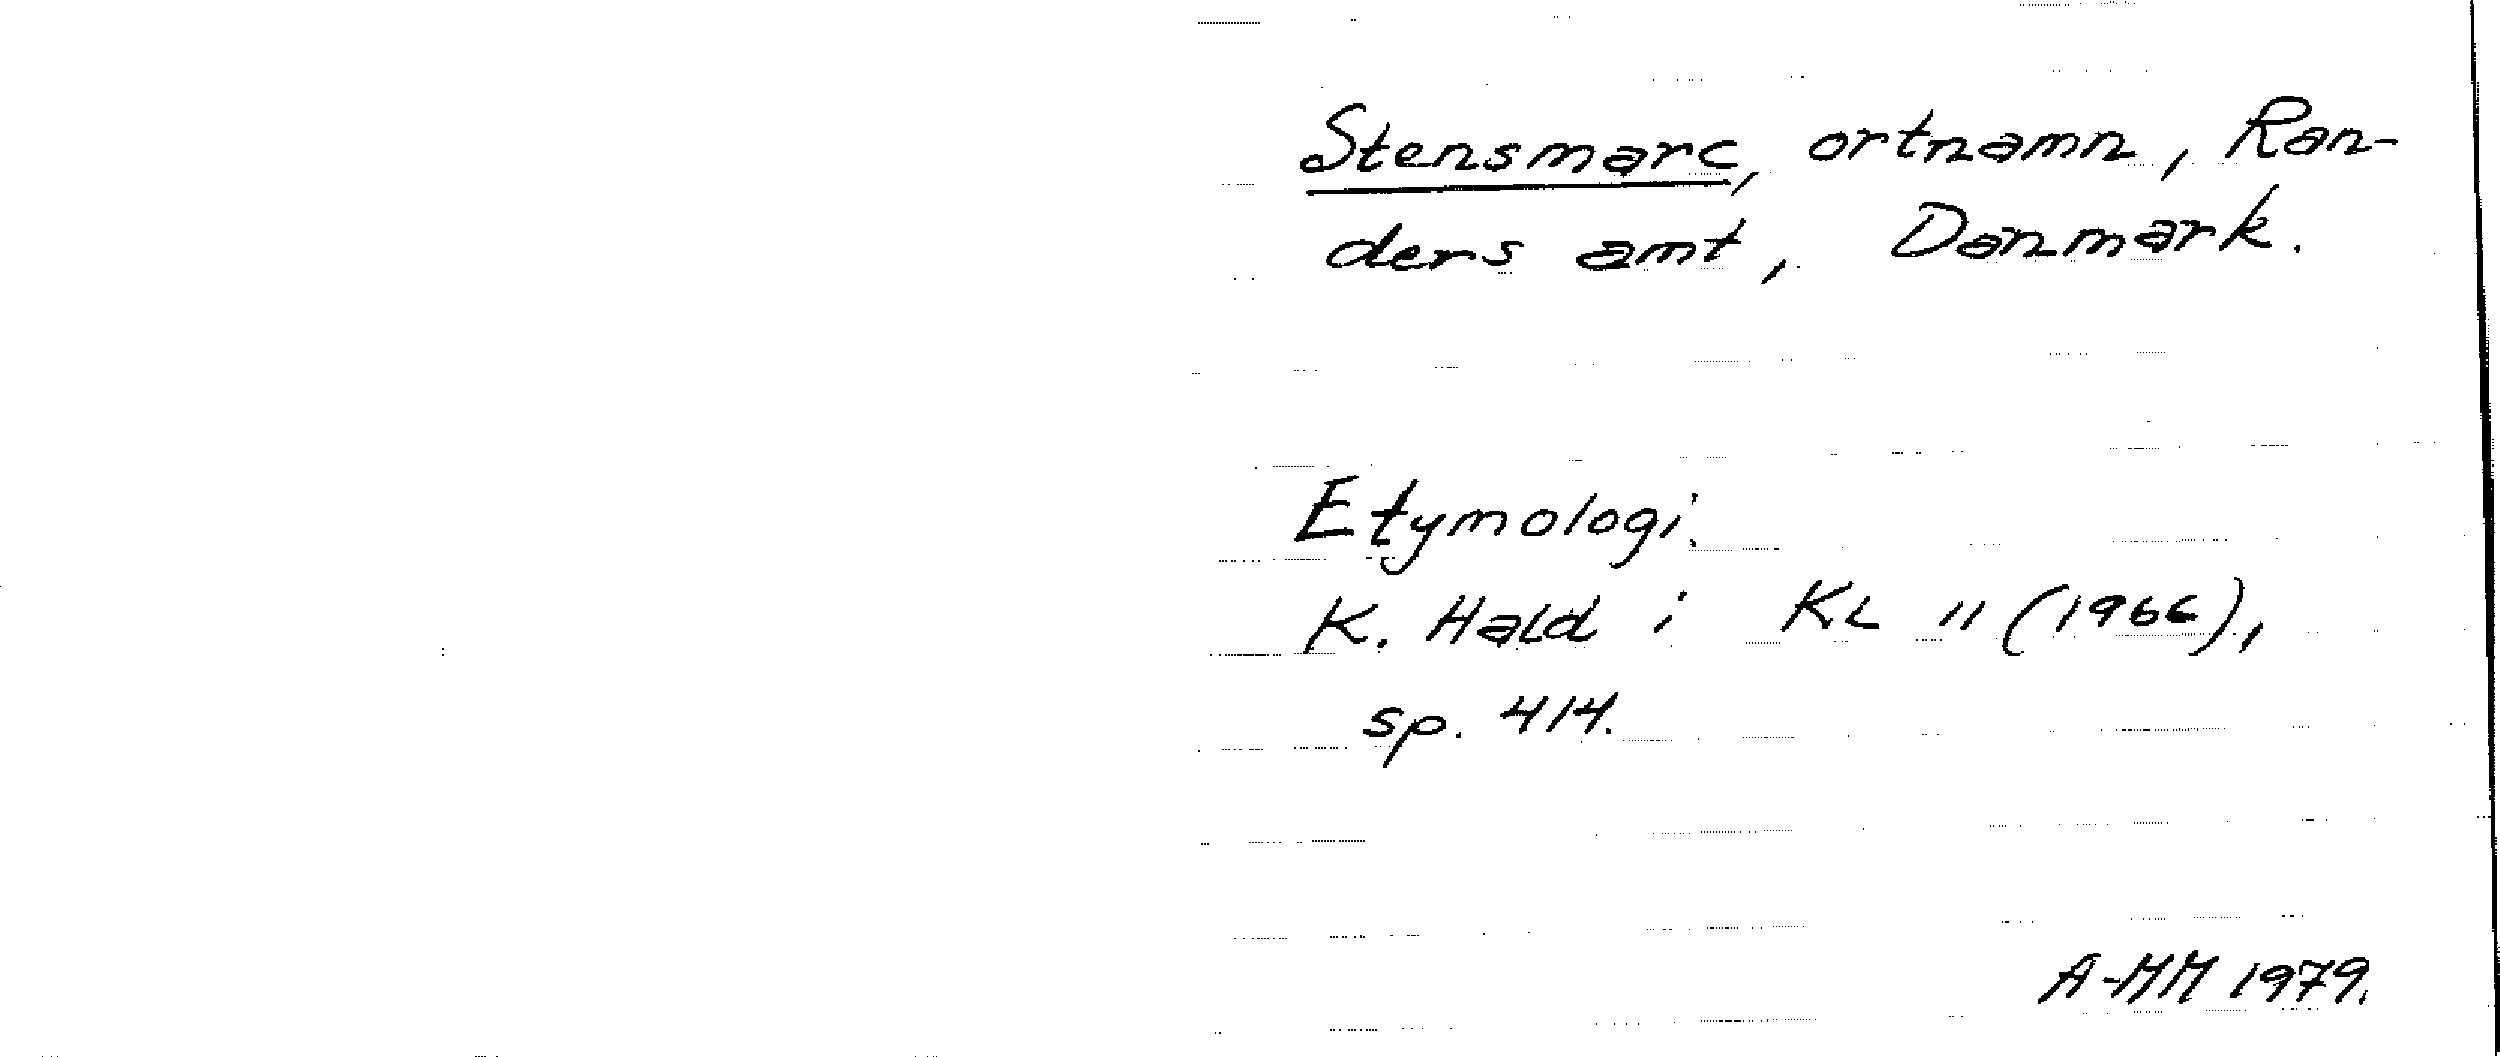 Stensmarc, ortnamn, Ran-
ders amt, Danmark.
Etymologi:
K. Hald i KL 11 (1966),
sp. 414.
A-MM 1979.